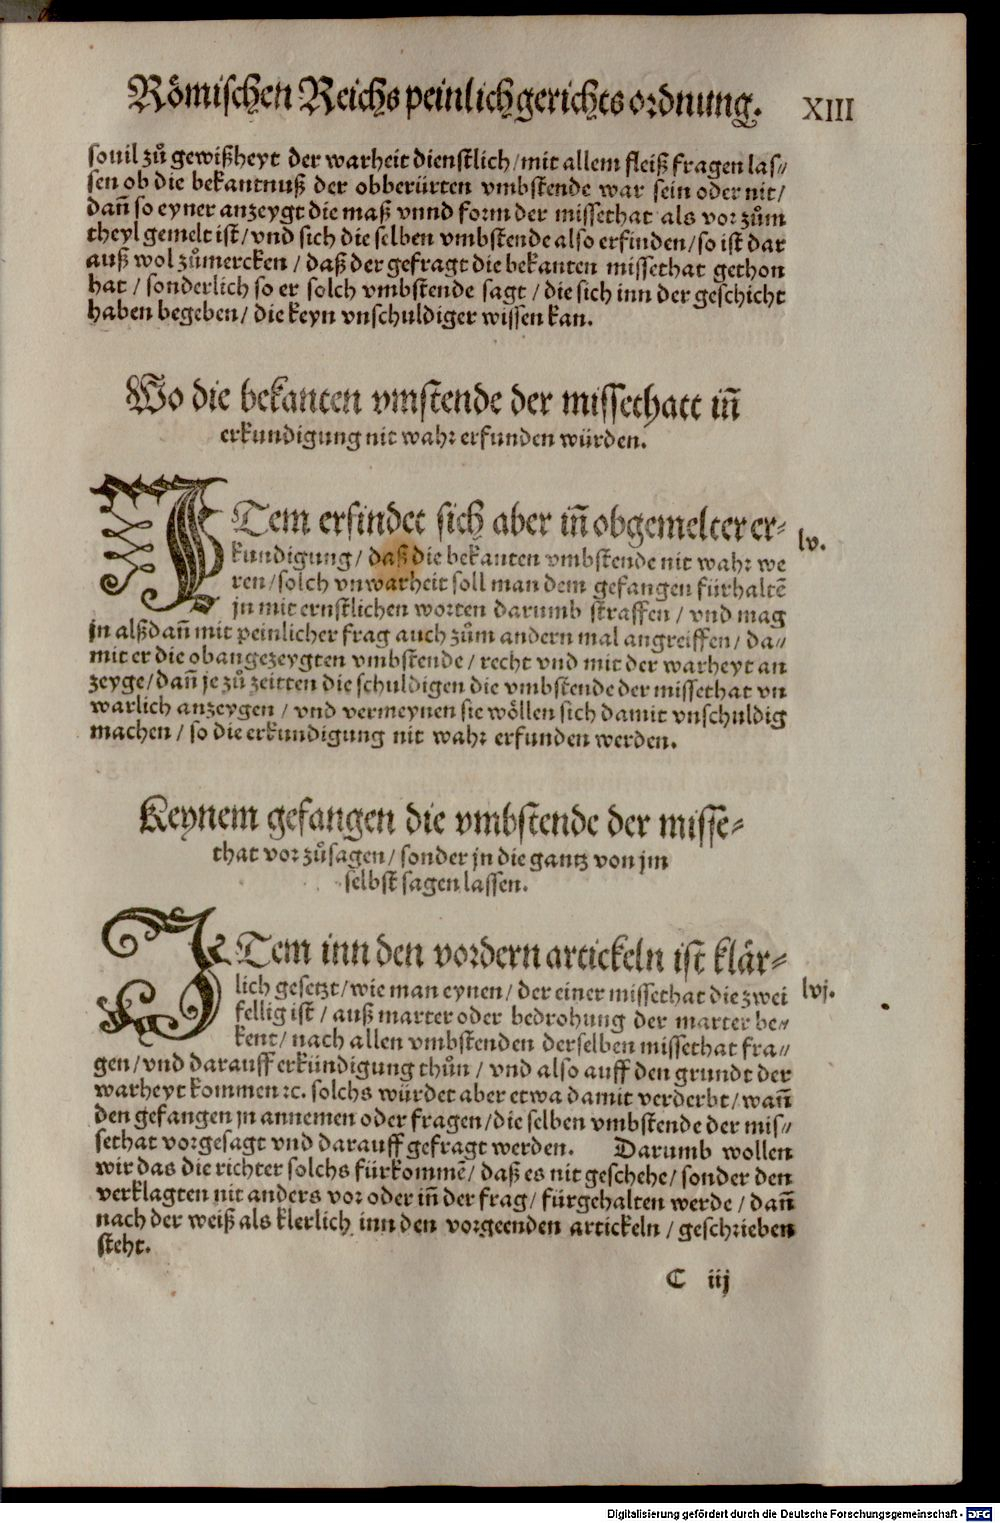 Römischen Reichs peinlich gerichts ordnung. XIII
souil zů gewißheyt der warheit dienstlich/mit allem fleiß fragen las⸗
sen ob die bekantnuß der obberürten vmbstende war sein oder nit/
dañ so eyner anzeygt die maß vnnd form der missethat als vor zům
theyl gemelt ist/vnd sich die selben vmbstende also erfinden/so ist dar
auß wol zůmercken/daß der gefragt die bekanten missethat gethon
hat/sonderlich so er solch vmbstende sagt/die sich inn der geschicht
haben begeben/die keyn vnschuldiger wissen kan.
Wo die bekanten vmstende der missethatt iñ
erkundigung nit wahr erfunden würden.
ITem erfindet sich aber iñ obgemelter er⸗
lv.
kundigung/daß die bekanten vmbstende nit wahr we
ren/solch vnwarheit soll man dem gefangen fürhaltẽ
jn mit ernstlichen worten darumb straffen/vnd mag
jn alßdañ mit peinlicher frag auch zům andern mal angreiffen/da⸗
mit er die obangezeygten vmbstende/recht vnd mit der warheyt an
zeyge/dañ je zů zeitten die schuldigen die vmbstende der missethat vn
warlich anzeygen/vnd vermeynen sie wöllen sich damit vnschuldig
machen/so die erkundigung nit wahr erfunden werden.
Keynem gefangen die vmbstende der misse⸗
that vor zůsagen/sonder jn die gantz von jm
selbst sagen lassen.
ITem inn den vordern artickeln ist klär⸗
lich gesetzt/wie man eynen/der einer missethat die zwei
lvj.
fellig ist/auß marter oder bedrohung der marter be⸗
kent/nach allen vmbstenden derselben missethat fra⸗
gen/vnd darauff erkündigung thůn/vnd also auff den grundt der
warheyt kommen ꝛc. solchs würdet aber etwa damit verderbt/wañ
den gefangen jn annemen oder fragen/die selben vmbstende der mis⸗
sethat vorgesagt vnd darauff gefragt werden. Darumb wollen
wir das die richter solchs fürkommẽ/daß es nit geschehe/sonder den
verklagten nit anders vor oder iñ der frag/fürgehalten werde/dañ
nach der weiß als klerlich inn den vorgeenden artickeln/geschrieben
steht.
C iij
Digitalisierung gefördert durch die Deutsche Forschungsgemeinschaft - DFG